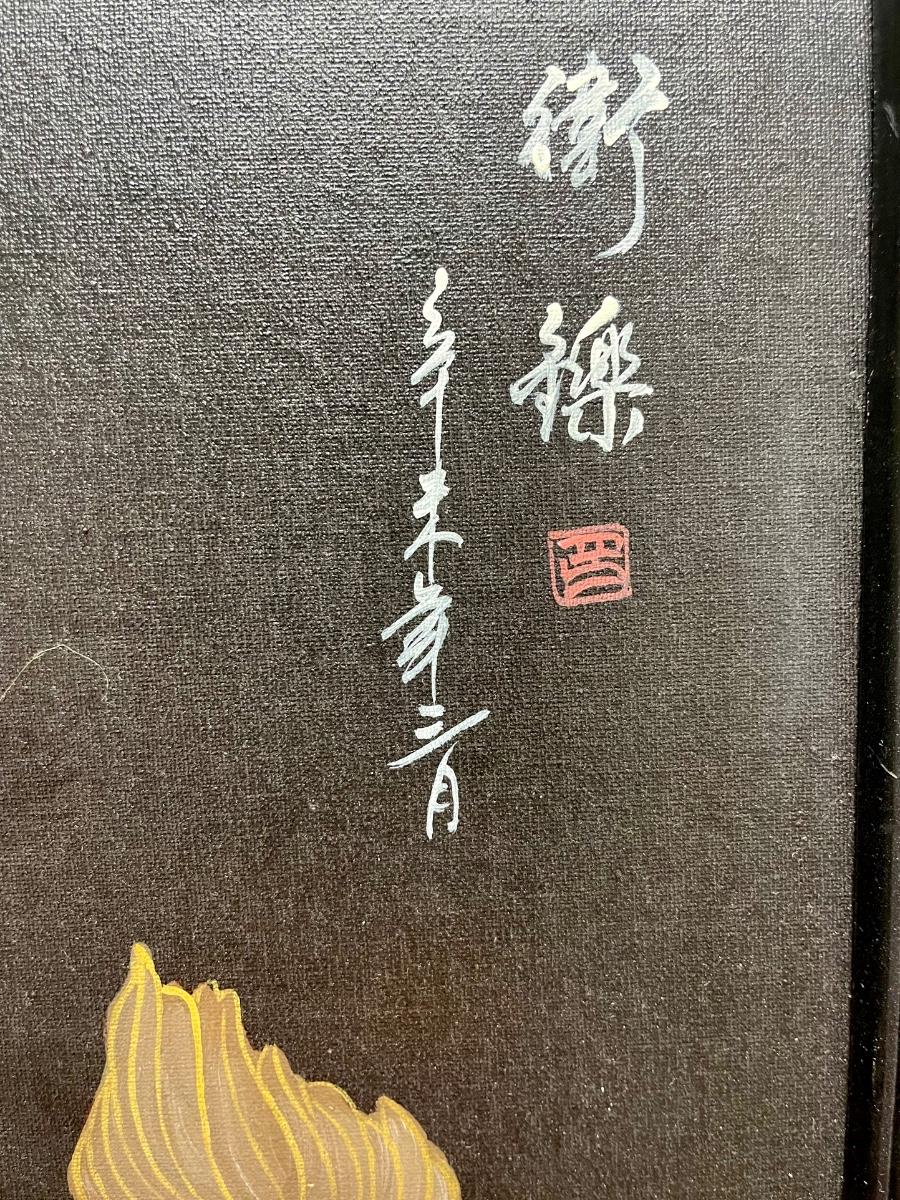 衛鑠
辛未年三月